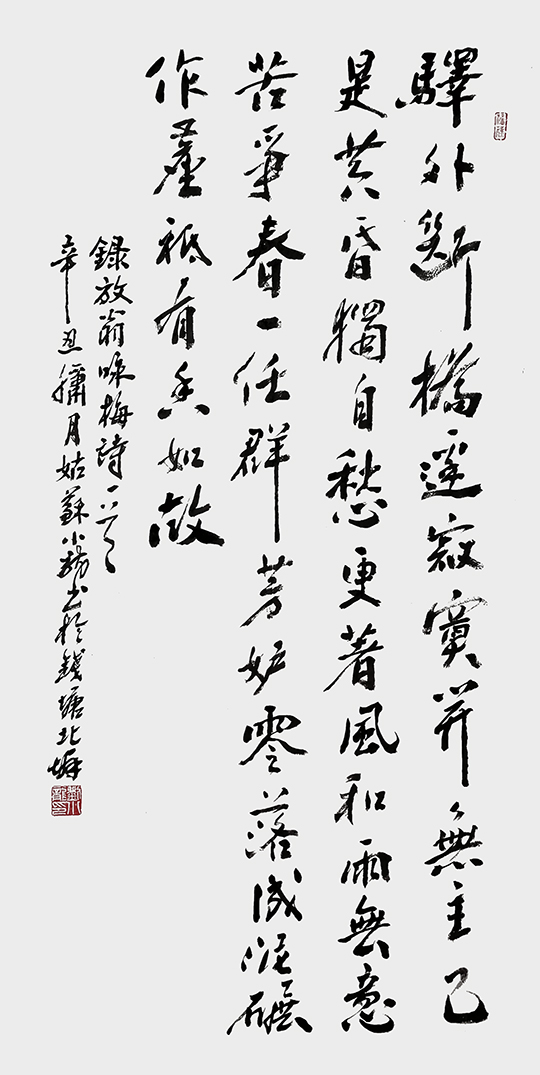 驛外斷橋邊寂寞開無主已
是黄昏獨自愁更著風和雨無意
苦爭春一任群芳妒零落成泥碾
作塵祇有香如故
録放翁咏梅詩一首
辛丑月姑蘇小書於錢塘北